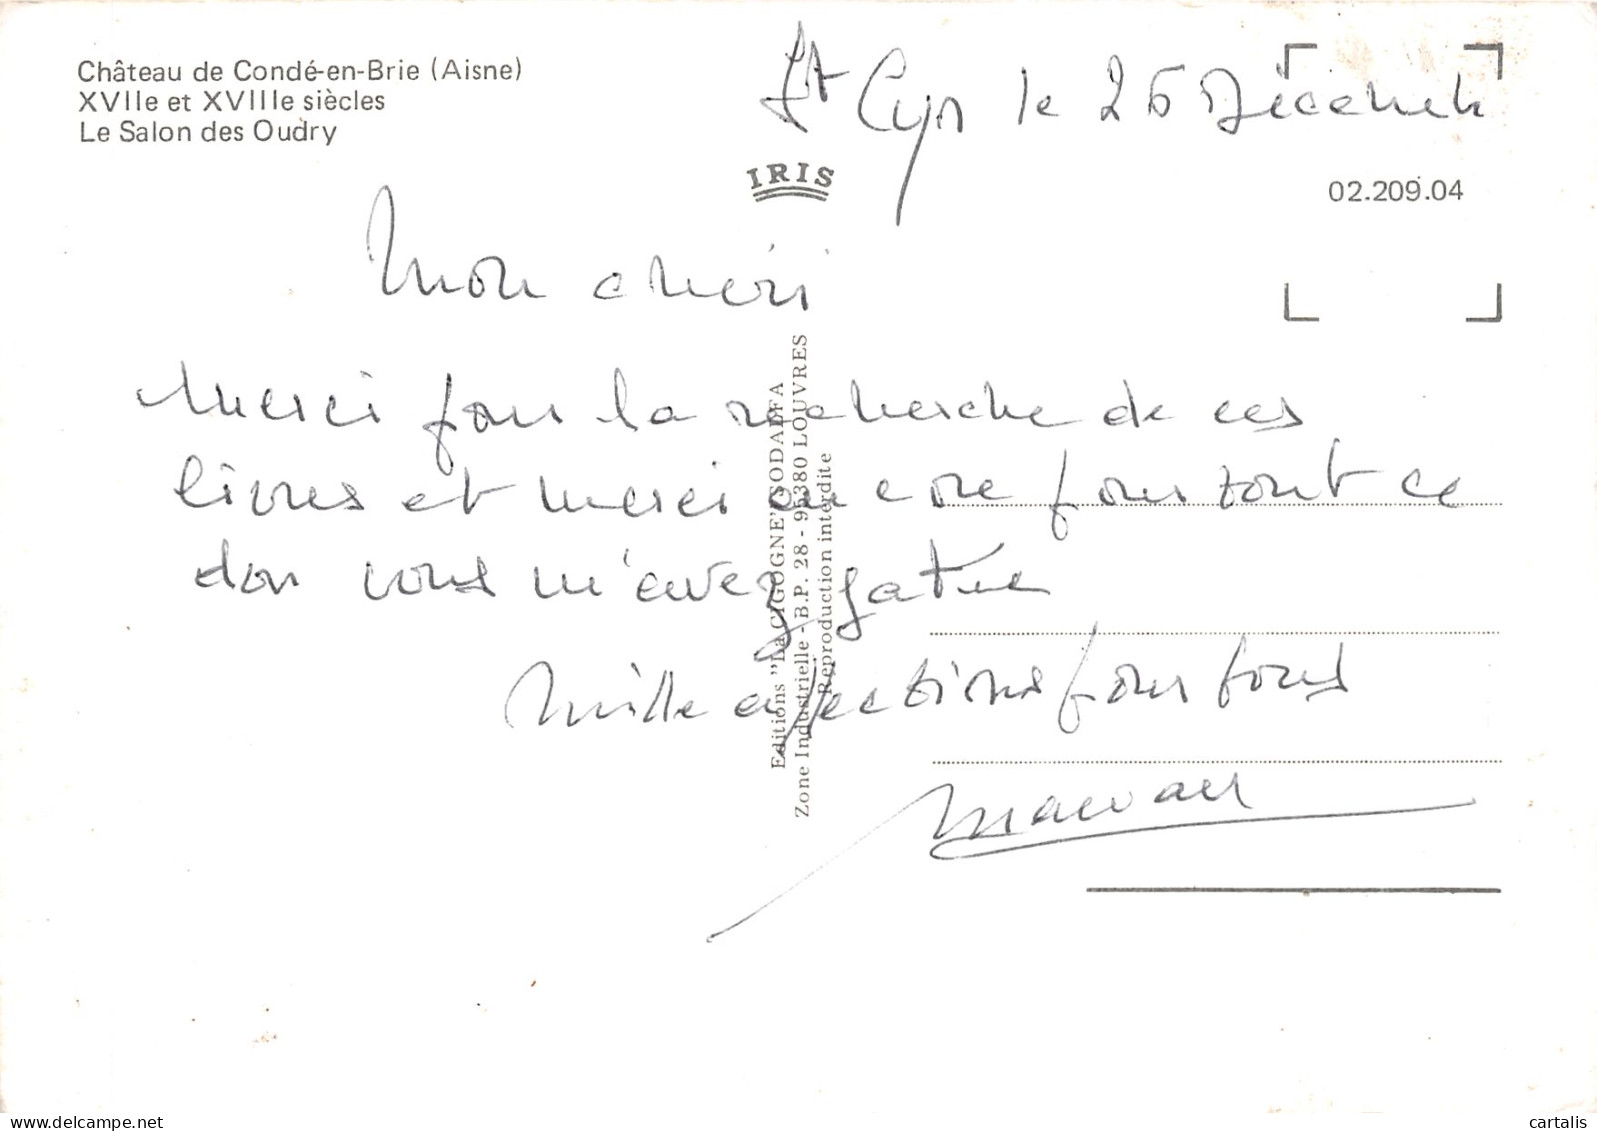 Château de Condé-en-Brie (Aisne)
XVIIe et XVIIIe siècles
Le Salon des Oudry
St Cyr le 26 Décembre
IRIS
02.209.04
Mon chéri
Merci pour la recherche de ces
livres et merci encore pour tout ce
don vous m'avez gatée
Mille affections pour tous
Maman
Editions "La CIGOGNE" SODALFA
Zone Industrielle - B.P. 28 - 95380 LOUVRES
Reproduction interdite
cartalis